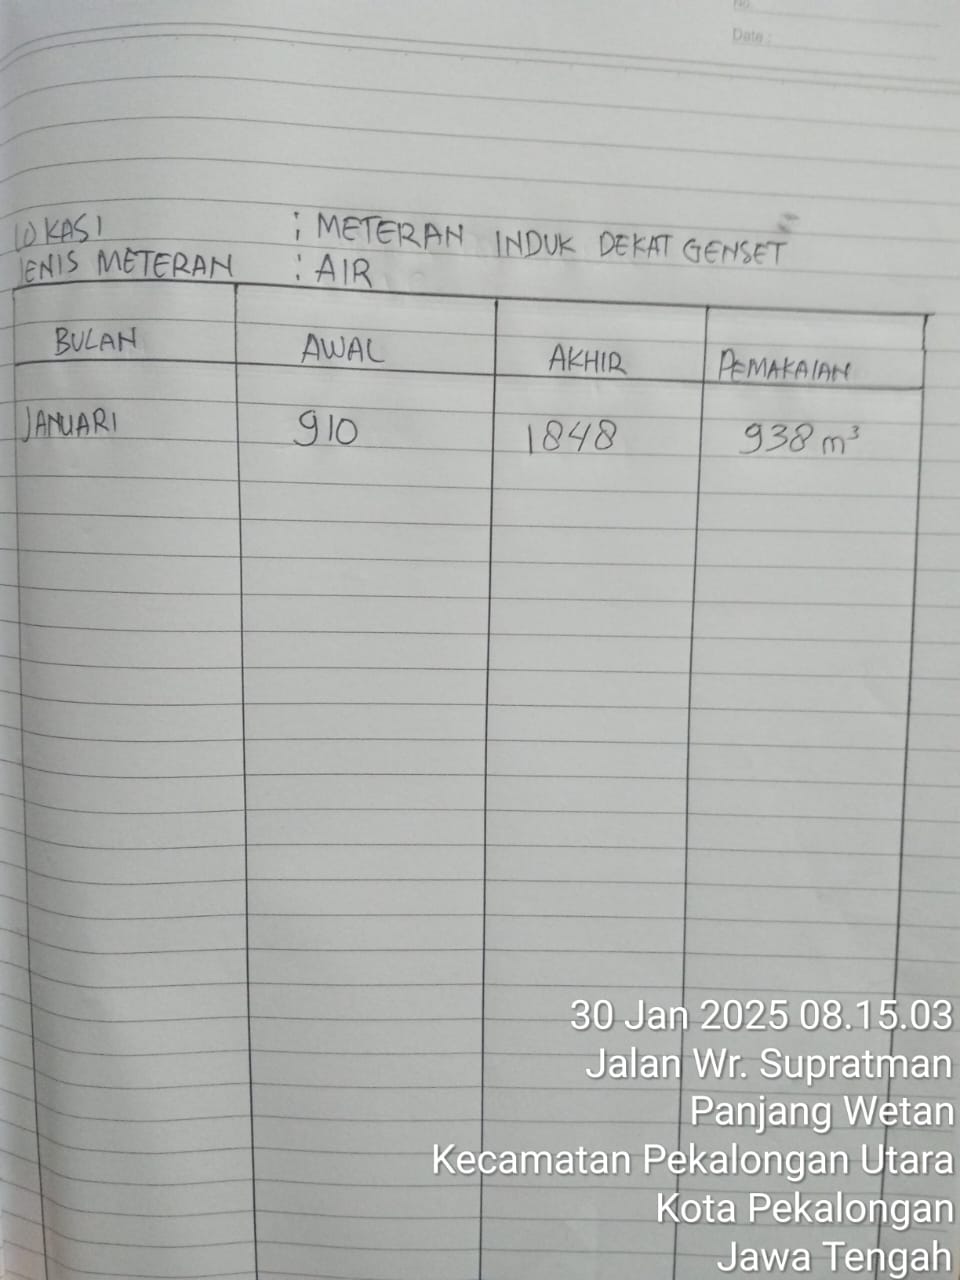 No.
Date :
LOKASI : METERAN INDUK DEKAT GENSET
JENIS METERAN : AIR
BULAN AWAL AKHIR PEMAKAIAN
JANUARI 910 1848 938 m³
30 Jan 2025 08.15.03
Jalan Wr. Supratman
Panjang Wetan
Kecamatan Pekalongan Utara
Kota Pekalongan
Jawa Tengah